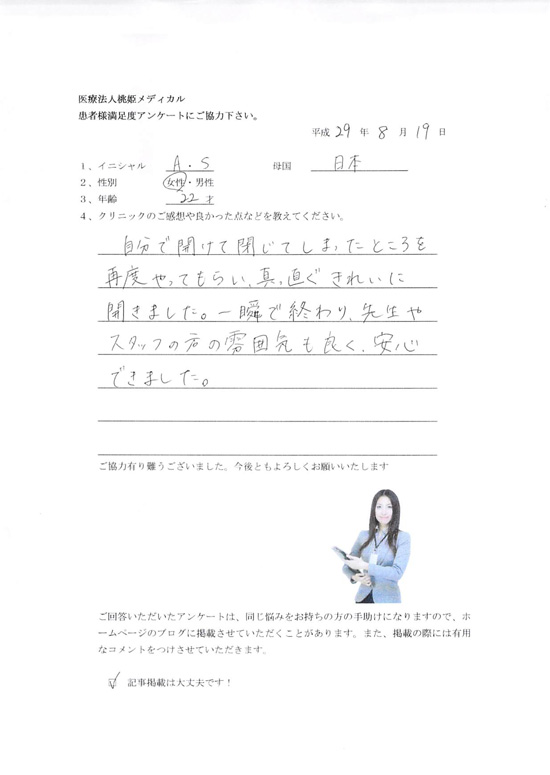 医療法人桃姫メディカル
患者様満足度アンケートにご協力下さい。
平成 29 年 8 月 19 日
1、イニシャル A.S 母国 日本
2、性別 女性・男性
3、年齢 22才
4、クリニックのご感想や良かった点などを教えてください。
自分で開けて閉じてしまったところを
再度やってもらい、真っ直ぐきれいに
開きました。一瞬で終わり、先生や
スタッフの方の雰囲気も良く、安心
できました。
ご協力有り難うございました。今後ともよろしくお願いいたします
ご回答いただいたアンケートは、同じ悩みをお持ちの方の手助けになりますので、ホ
ームページのブログに掲載させていただくことがあります。また、掲載の際には有用
なコメントをつけさせていただきます。
記事掲載は大丈夫です！